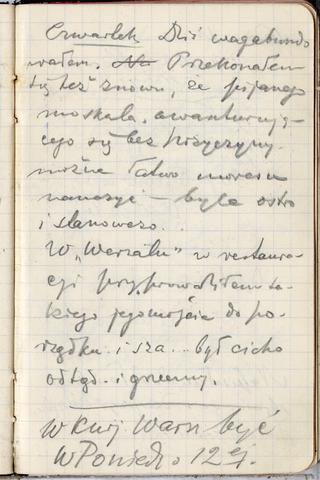 Czwartek Dziś wagabundo
wałem. Na Przekonałem
się też znowu, że pijanego
moskala, awanturują-
cego się bez przyczyny
można łatwo moresu
nauczyć – byle ostro
i stanowczo.
W „Wersalu" w restaura-
cji przyprowadziłem ta-
kiego jegomościa do po-
rządku i sza... był cicho
odtąd i grzeczny.
W Kurj Warsz być
w Poniedz o 12 ej.